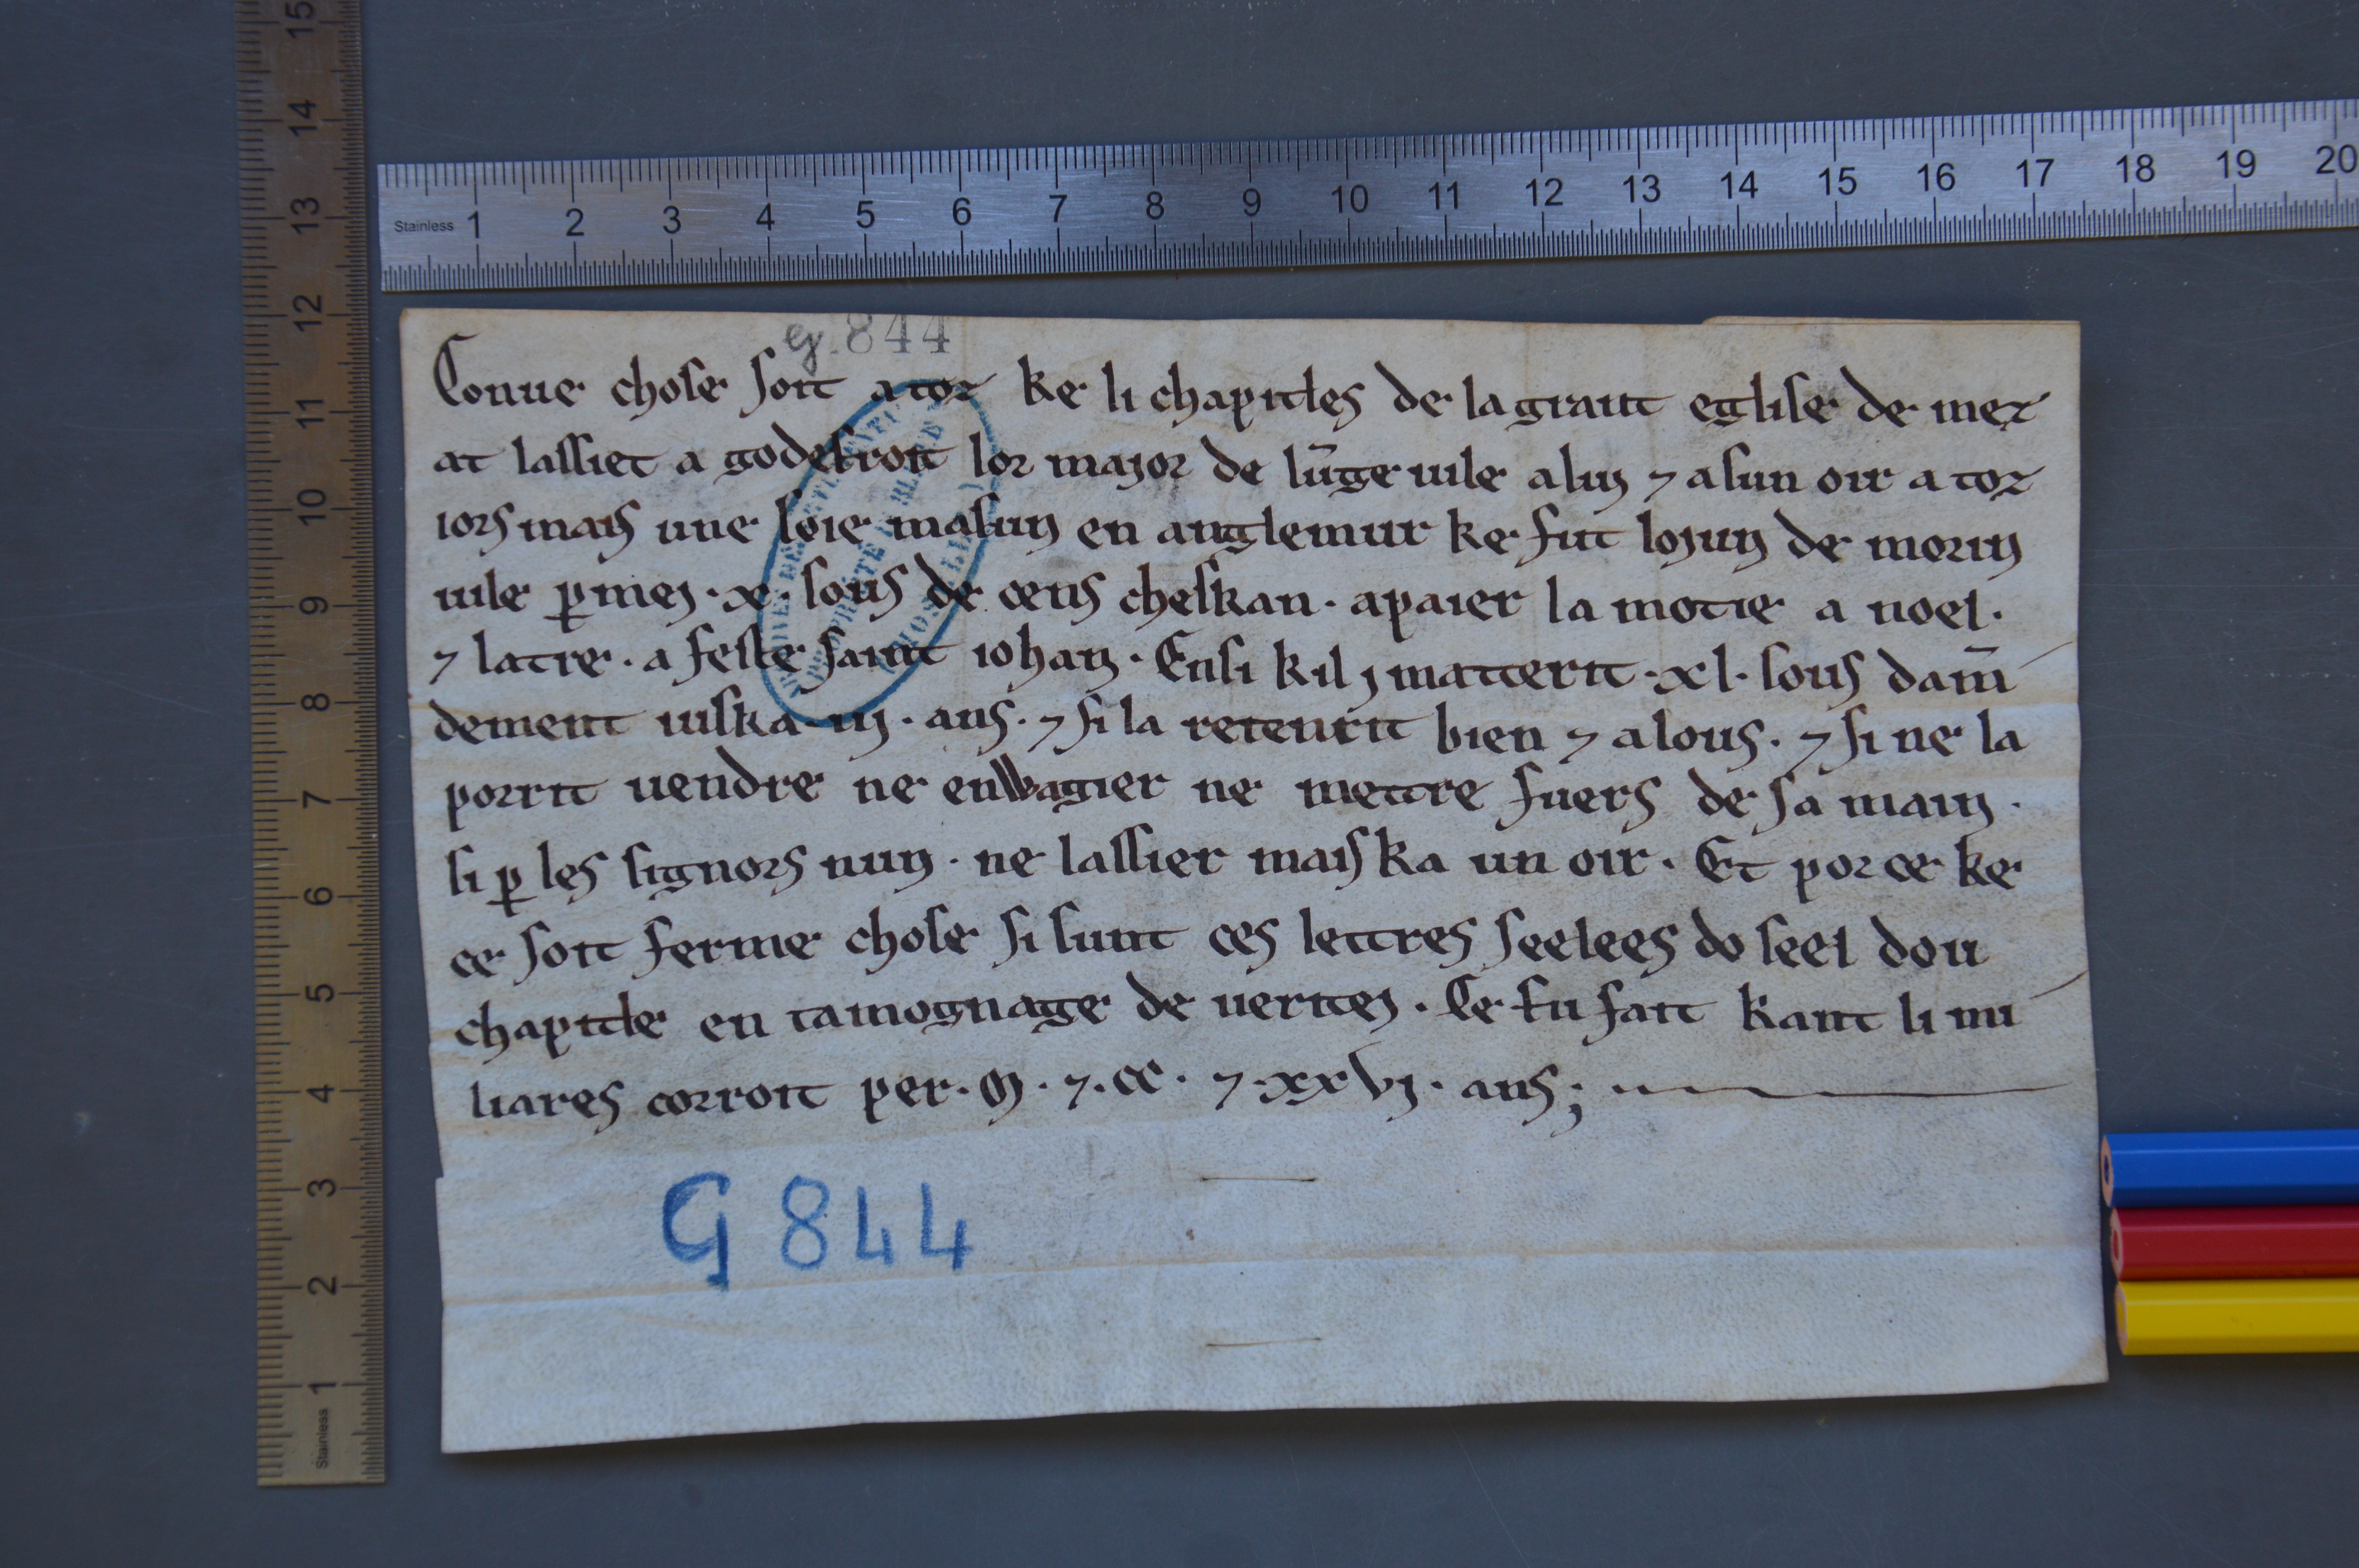 G. 844
Conue chose soit a toz ke li chapitles de la grant eglise de mez
at lassiet a godefroit lor major de lūgeuile a luj ⁊ a sun oir a toz
iors mais une soie masun en anglemur ke fut lojun de morin
uile ꝑ mej · x · sous de cens cheskan · a paier la motie a noel ·
⁊ latre · a feste saint iohan · Ensi kil j matterit · xl · sous dam̄
dement iuska · iij · ans · ⁊ si la retenrit bien ⁊ a lous · ⁊ si ne la
porrit uendre ne enwagier ne mettre fuers de sa main ·
si ꝑ les signors nun · ne lassier mais ka un oir · Et por ce ke
ce soit ferme chose si sunt ces lettres seelees do seel dou
chapitle en tamognage de ueritej · Ce fu fait kant li mi
liares corroit per · m · ⁊ · cc · ⁊ · xxvj · ans ;
G 844
Stainless 1 2 3 4 5 6 7 8 9 10 11 12 13 14 15 16 17 18 19 20
Stainless 1 2 3 4 5 6 7 8 9 10 11 12 13 14 15